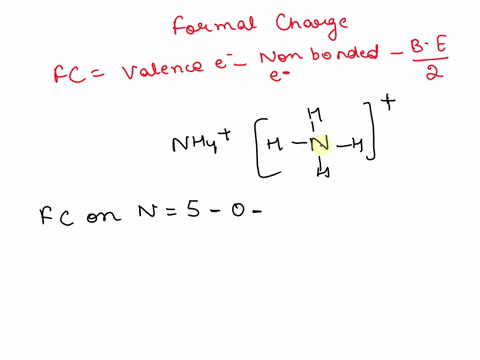 Formal Charge
FC = Valence e⁻ - Non bonded e⁻ - B.E/2
NH4⁺ [H - N - H]⁺
H
H
FC on N = 5 - 0 -